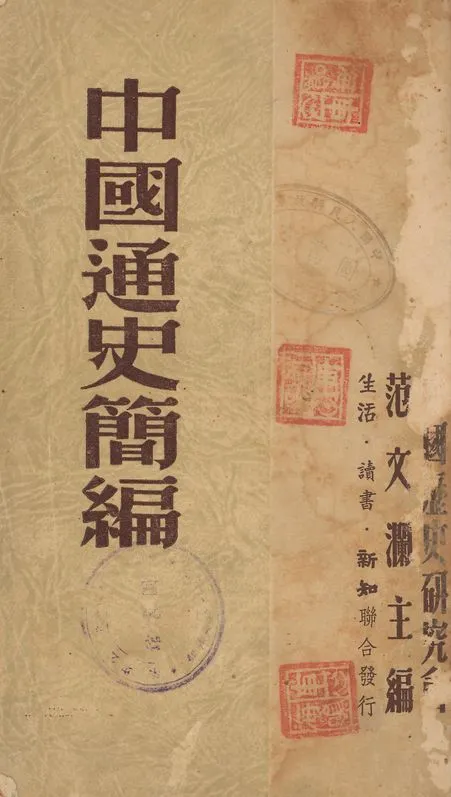 國歷史研究會
范文瀾主編
生活·讀書·新知聯合發行
中國通史簡編